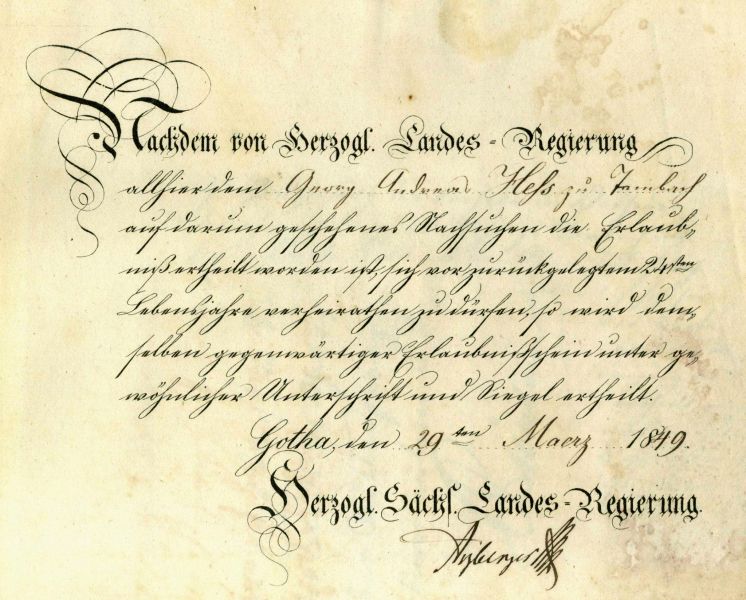 Nachdem von Herzogl. Landes-Regierung
allhier dem Georg Andreas Heß zu Tambach
auf darum geschehenes Nachsuchen die Erlaub-
niß ertheilt worden ist, sich vor zurückgelegtem 24sten
Lebensjahre verheirathen zu dürfen, so wird dem-
selben gegenwärtiger Erlaubnißschein unter ge-
wöhnlicher Unterschrift und Siegel ertheilt.
Gotha, den 29ten Maerz 1849.
Herzogl. Sächs. Landes-Regierung.